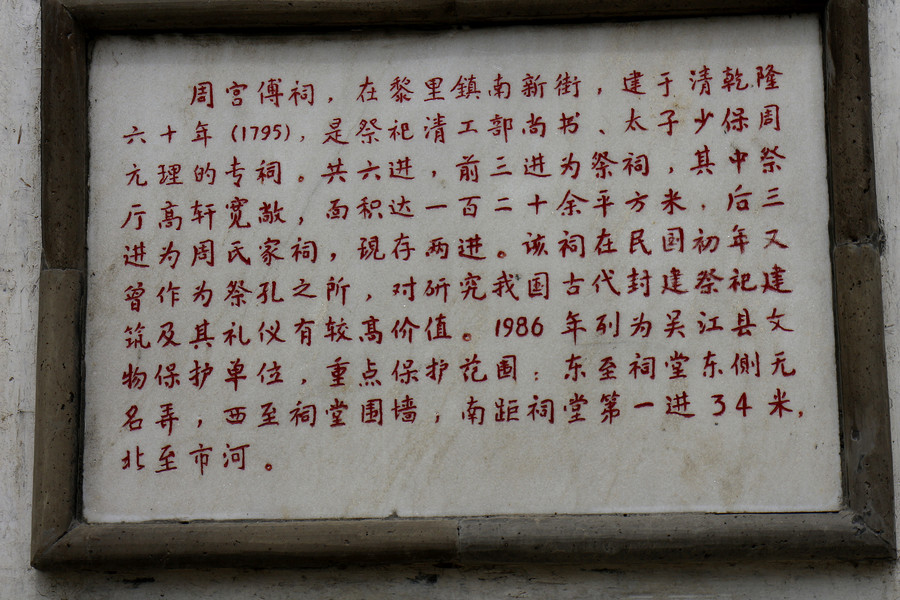 周宫傅祠，在黎里鎮南新街，建于清乾隆
六十年(1795)，是祭祀清工部尚书、太子少保周
元理的专祠。共六进，前三进为祭祠，其中祭
厅高轩宽敞，面积达一百二十余平方米，后三
进为周氏家祠，现存两进。该祠在民国初年又
曾作为祭孔之所，对研究我国古代封建祭祀建
筑及其礼仪有较高价值。1986年列为吴江县文
物保护单位，重点保护范围：东至祠堂东側无
名弄，西至祠堂围墙，南距祠堂第一进34米，
北至市河。